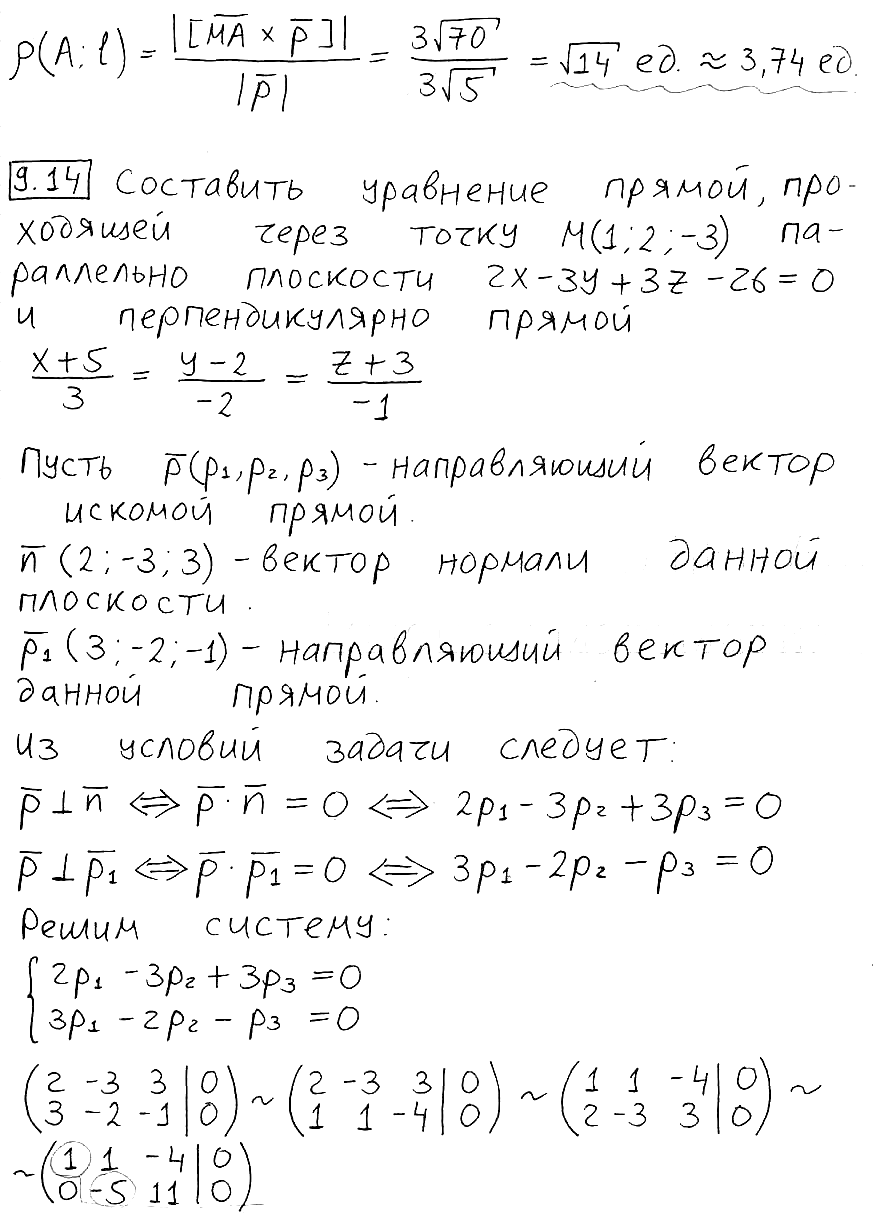 ρ(A; l) = |[M̅A̅ × p̅]| / |p̅| = 3√70 / 3√5 = √14 ед. ≈ 3,74 ед.
9.14 Составить уравнение прямой, про-
ходящей через точку M(1; 2; -3) па-
раллельно плоскости 2x - 3y + 3z - 26 = 0
и перпендикулярно прямой
(x + 5)/3 = (y - 2)/-2 = (z + 3)/-1
Пусть p̅(p₁, p₂, p₃) - направляющий вектор
искомой прямой.
n̅ (2; -3; 3) - вектор нормали данной
плоскости.
p̅₁ (3; -2; -1) - направляющий вектор
данной прямой.
Из условий задачи следует:
p̅ ⊥ n̅ ⇔ p̅ · n̅ = 0 ⇔ 2p₁ - 3p₂ + 3p₃ = 0
p̅ ⊥ p̅₁ ⇔ p̅ · p̅₁ = 0 ⇔ 3p₁ - 2p₂ - p₃ = 0
Решим систему:
{ 2p₁ - 3p₂ + 3p₃ = 0
3p₁ - 2p₂ - p₃ = 0
(2 -3 3 | 0) ~ (2 -3 3 | 0) ~ (1 1 -4 | 0) ~
(3 -2 -1 | 0) (1 1 -4 | 0) (2 -3 3 | 0)
~ (1 1 -4 | 0)
(0 -5 11 | 0)